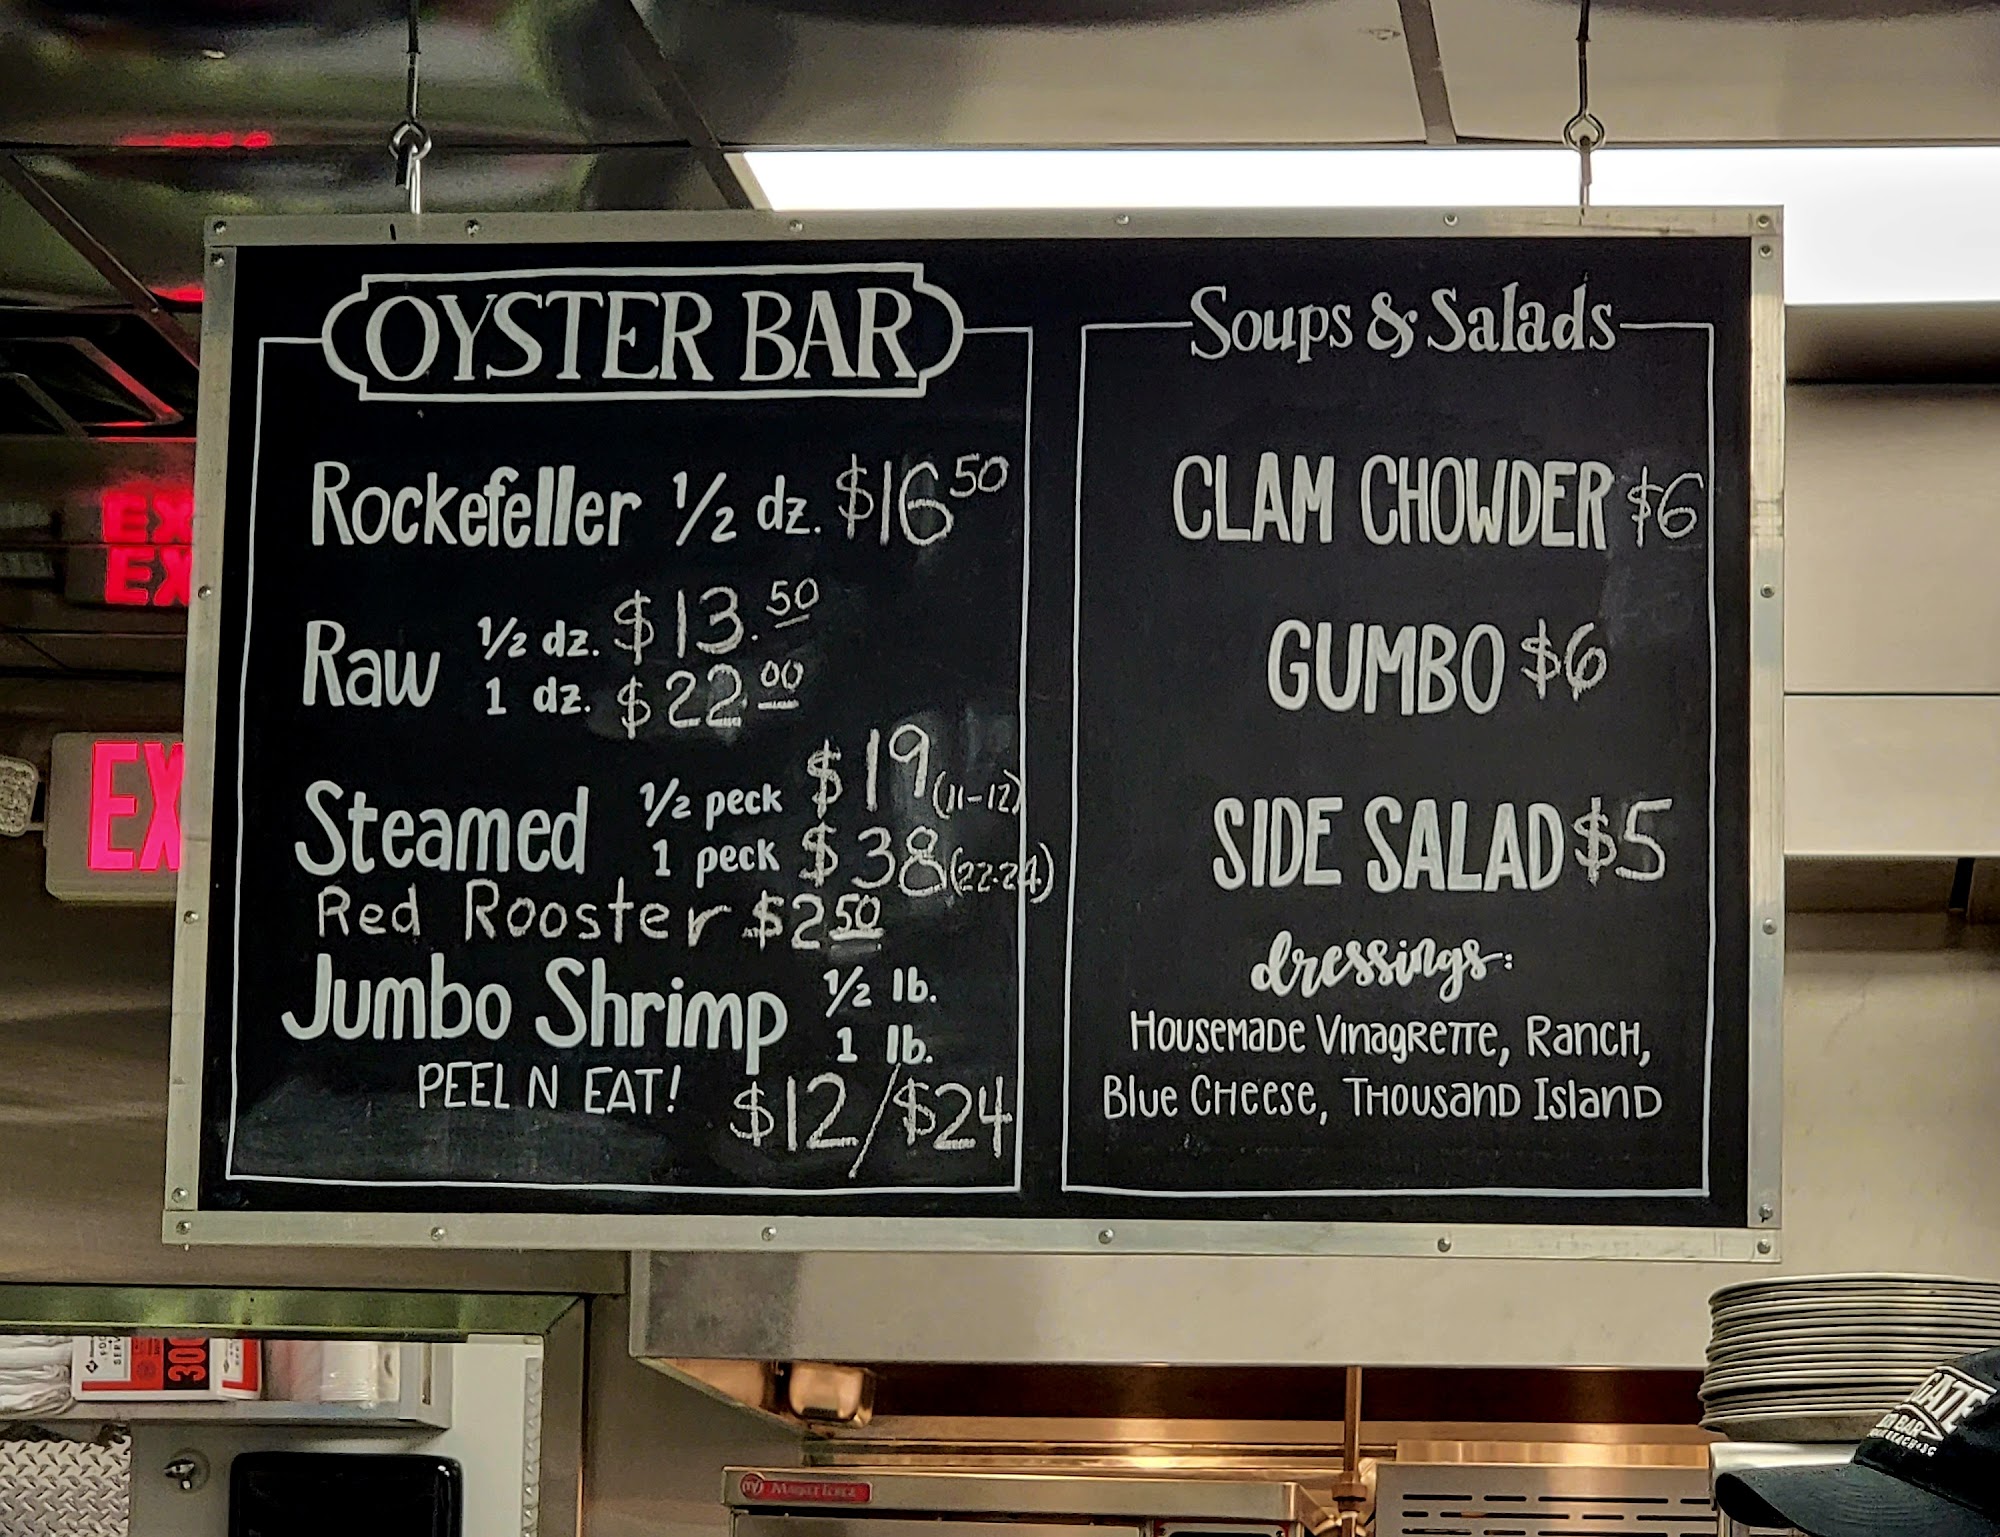 OYSTER BAR
Rockefeller 1/2 dz. $16 50
Raw 1/2 dz. $13.50
1 dz. $22 00
Steamed 1/2 peck $19 (11-12)
1 peck $38 (22-24)
Red Rooster $2 50
Jumbo Shrimp 1/2 lb.
1 lb.
PEEL N EAT! $12/$24
Soups & Salads
CLAM CHOWDER $6
GUMBO $6
SIDE SALAD $5
dressings:
Housemade Vinagrette, Ranch,
Blue Cheese, Thousand Island
EX
EX
EX
300
Market Forge
GATE
BAR